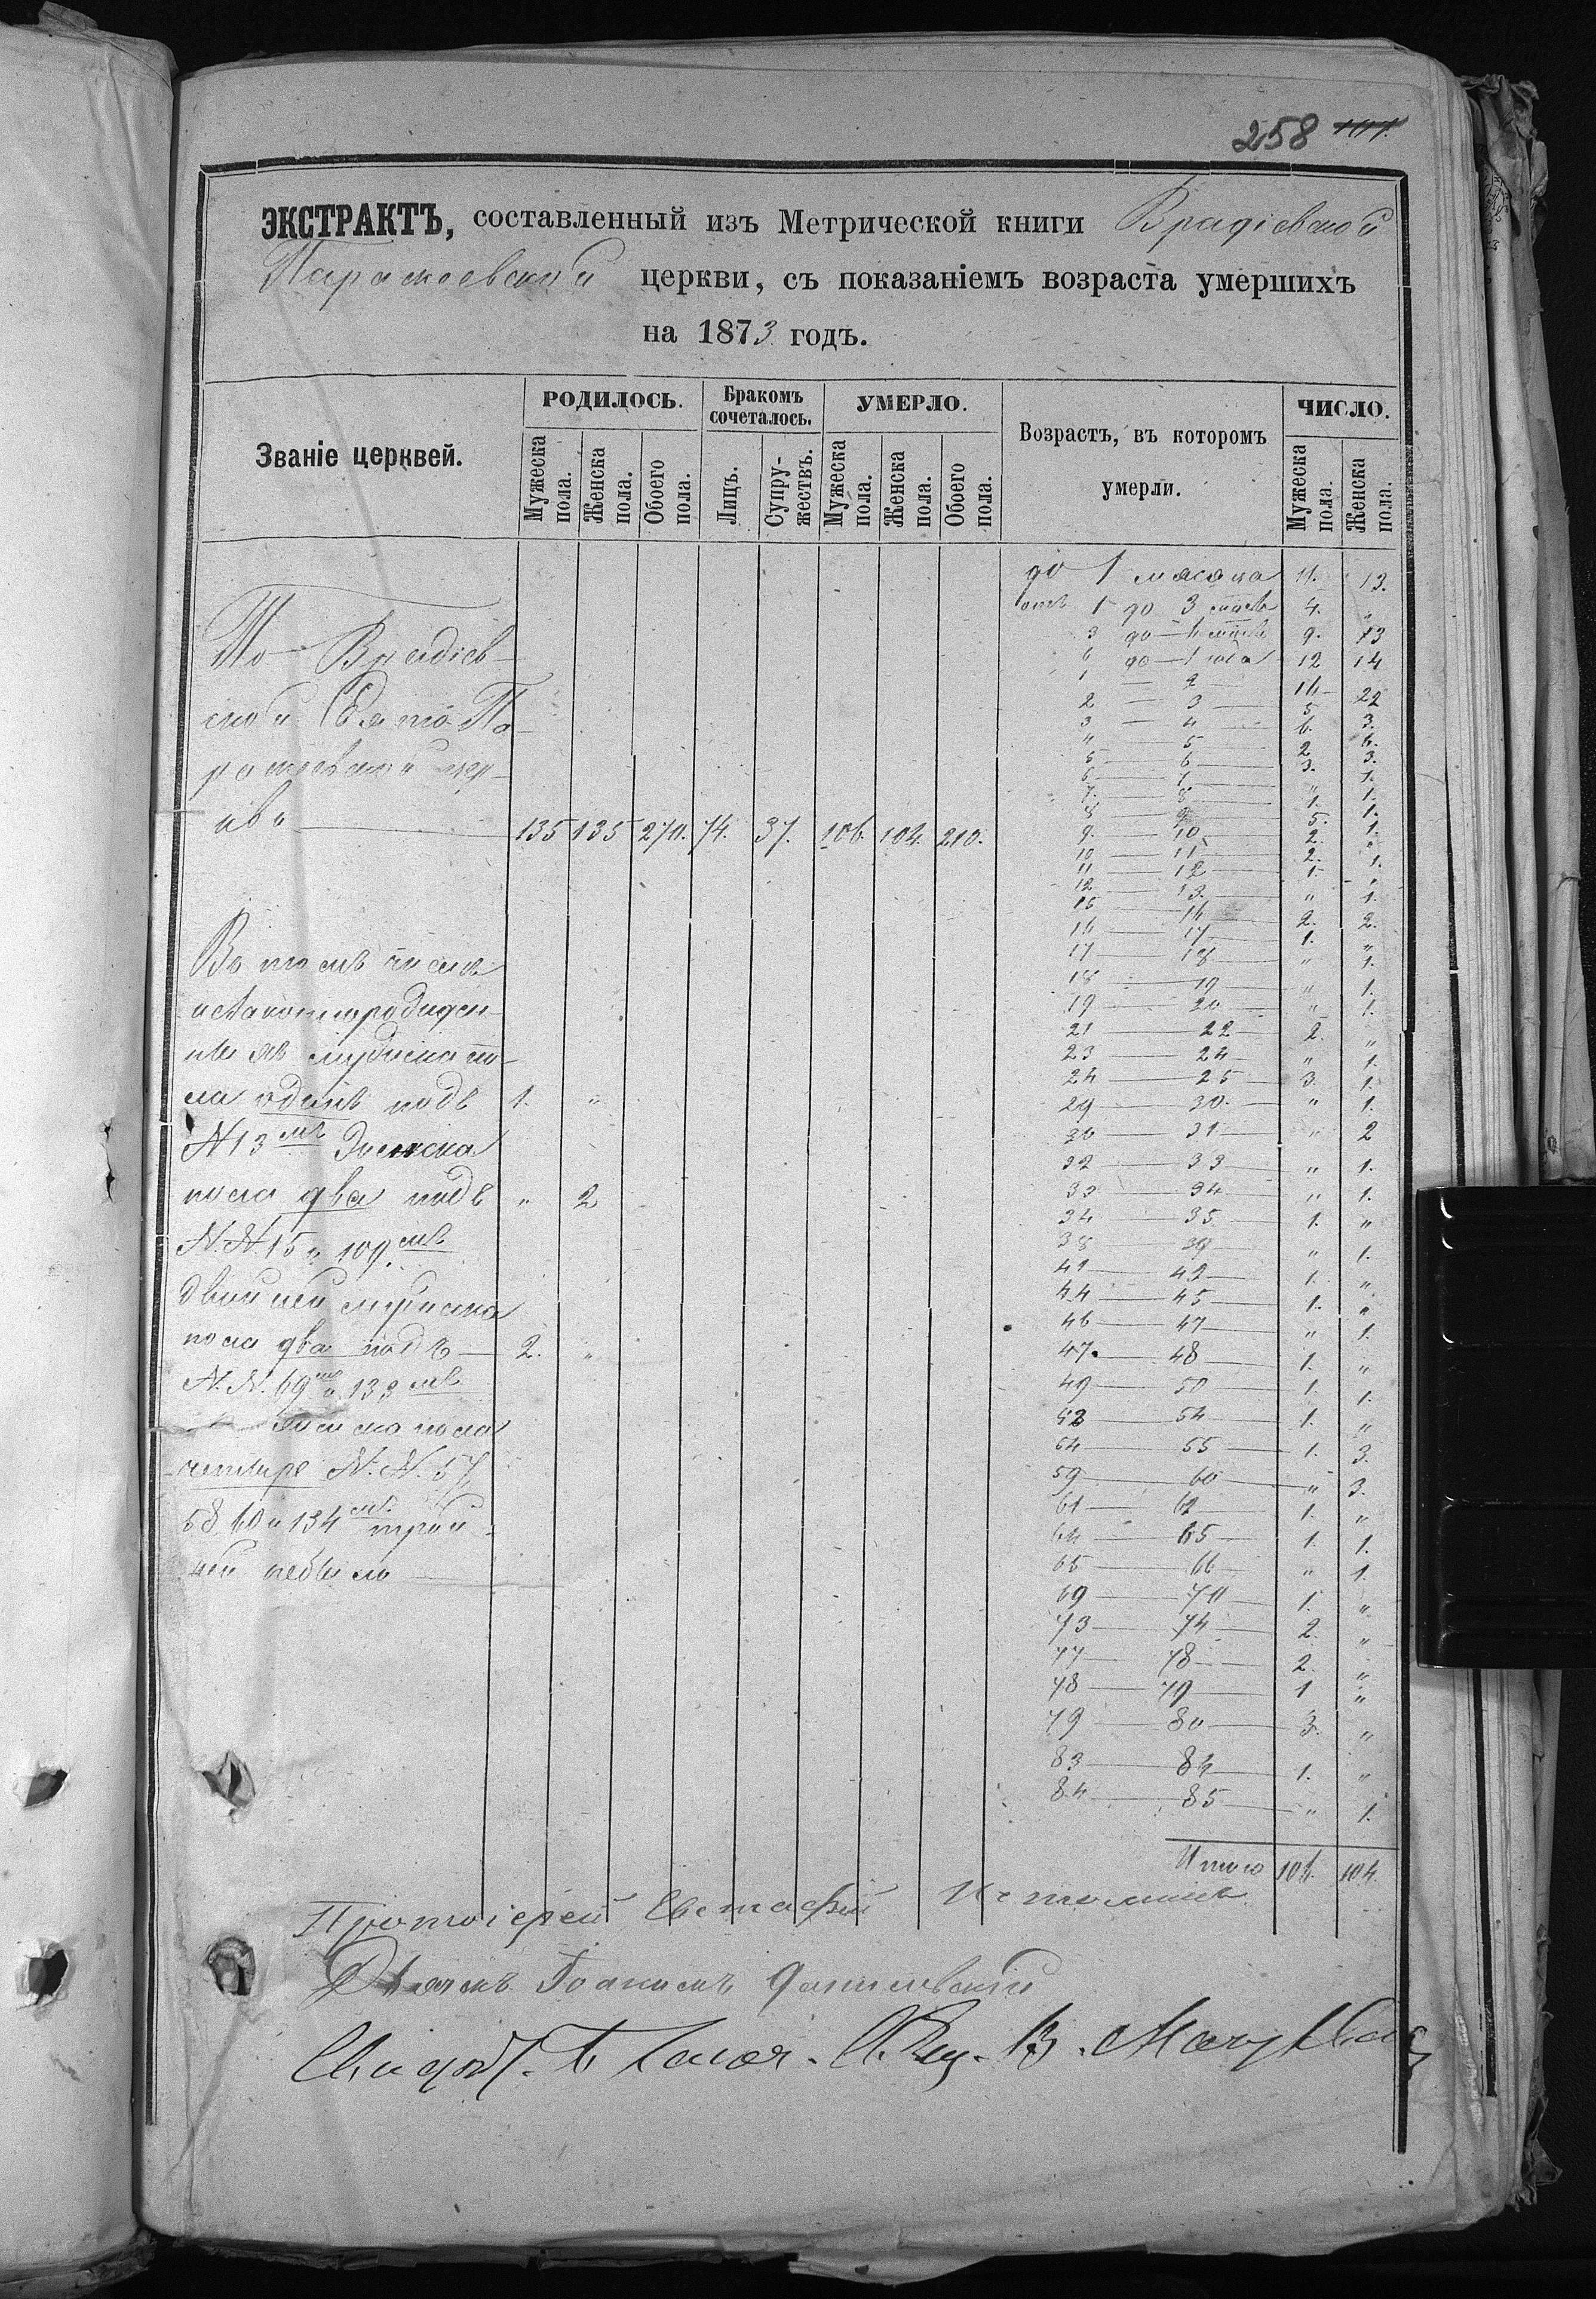 258 101.
ЭКСТРАКТЪ, составленный изъ Метрической книги Врадіевской
Параскоевской церкви, съ показаніемъ возраста умершихъ
на 1873 годъ.
Званіе церквей.
РОДИЛОСЬ.
Мужеска пола.
Женска пола.
Обоего пола.
Бракомъ сочеталось.
Лицъ.
Супружествъ.
УМЕРЛО.
Мужеска пола.
Женска пола.
Обоего пола.
Возрастъ, въ которомъ
умерли.
ЧИСЛО.
Мужеска пола.
Женска пола.
По Врадіев-
ской Свято Па-
раскоевской цер-
кви 135 135 270. 74. 37. 106. 104. 210.
Въ томъ числѣ
незаконнорожден-
ныхъ мужеска по-
ла одинъ подъ 1. "
N 13 мъ Женска
пола два подъ " 2
N.N. 15 и 109. мъ
двойней мужеска
пола два подъ 2. "
N.N. 69 и 133 мъ
женска пола
четыре N.N. 57
58 60 и 134 мъ трой-
ней небыло
до 1 мѣсяца 11. 13.
отъ 1 до 3 мѣс 4. "
3 до 6 мѣс 9. 13
6 до 1 года 12 14
1 — 2 16 22
2 — 3 5 3.
3 — 4 6. 6.
4 — 5 2 3.
5 — 6 3. 1.
6 — 7 " 1.
7. — 8 1. 1.
8 — 9 5. 1.
9. — 10 2. "
10 — 11 2. 1.
11 — 12 1. "
12 — 13. " 1.
15 — 16 2. 2.
16 — 17 1. "
17 — 18 " 1.
18 — 19 " 1.
19 — 20 " 1.
21 — 22 2. "
23 — 24 " 1.
24 — 25 3. 1.
29 — 30. " 1.
30 — 31 " 2
32 — 33 " 1.
33 — 34 " 1.
34 — 35 1. "
38 — 39 " 1.
41 — 42 1. "
44 — 45 1. "
46 — 47 " 1.
47. — 48 1. "
49 — 50 1. 1.
53 — 54 1. "
54 — 55 1. 3.
59 — 60 " 3.
61 — 62 1. "
64 — 65 1. 1.
65 — 66 " 1.
69 — 70 1. "
73 — 74 2. "
77 — 78 2. "
78 — 79 1 "
79 — 80 3. "
83 — 84 1. "
84 — 85 " 1.
Итого 106. 104.
Протоіерей Евстафій Истоминъ
Дьячекъ Іоакимъ Данилевскій